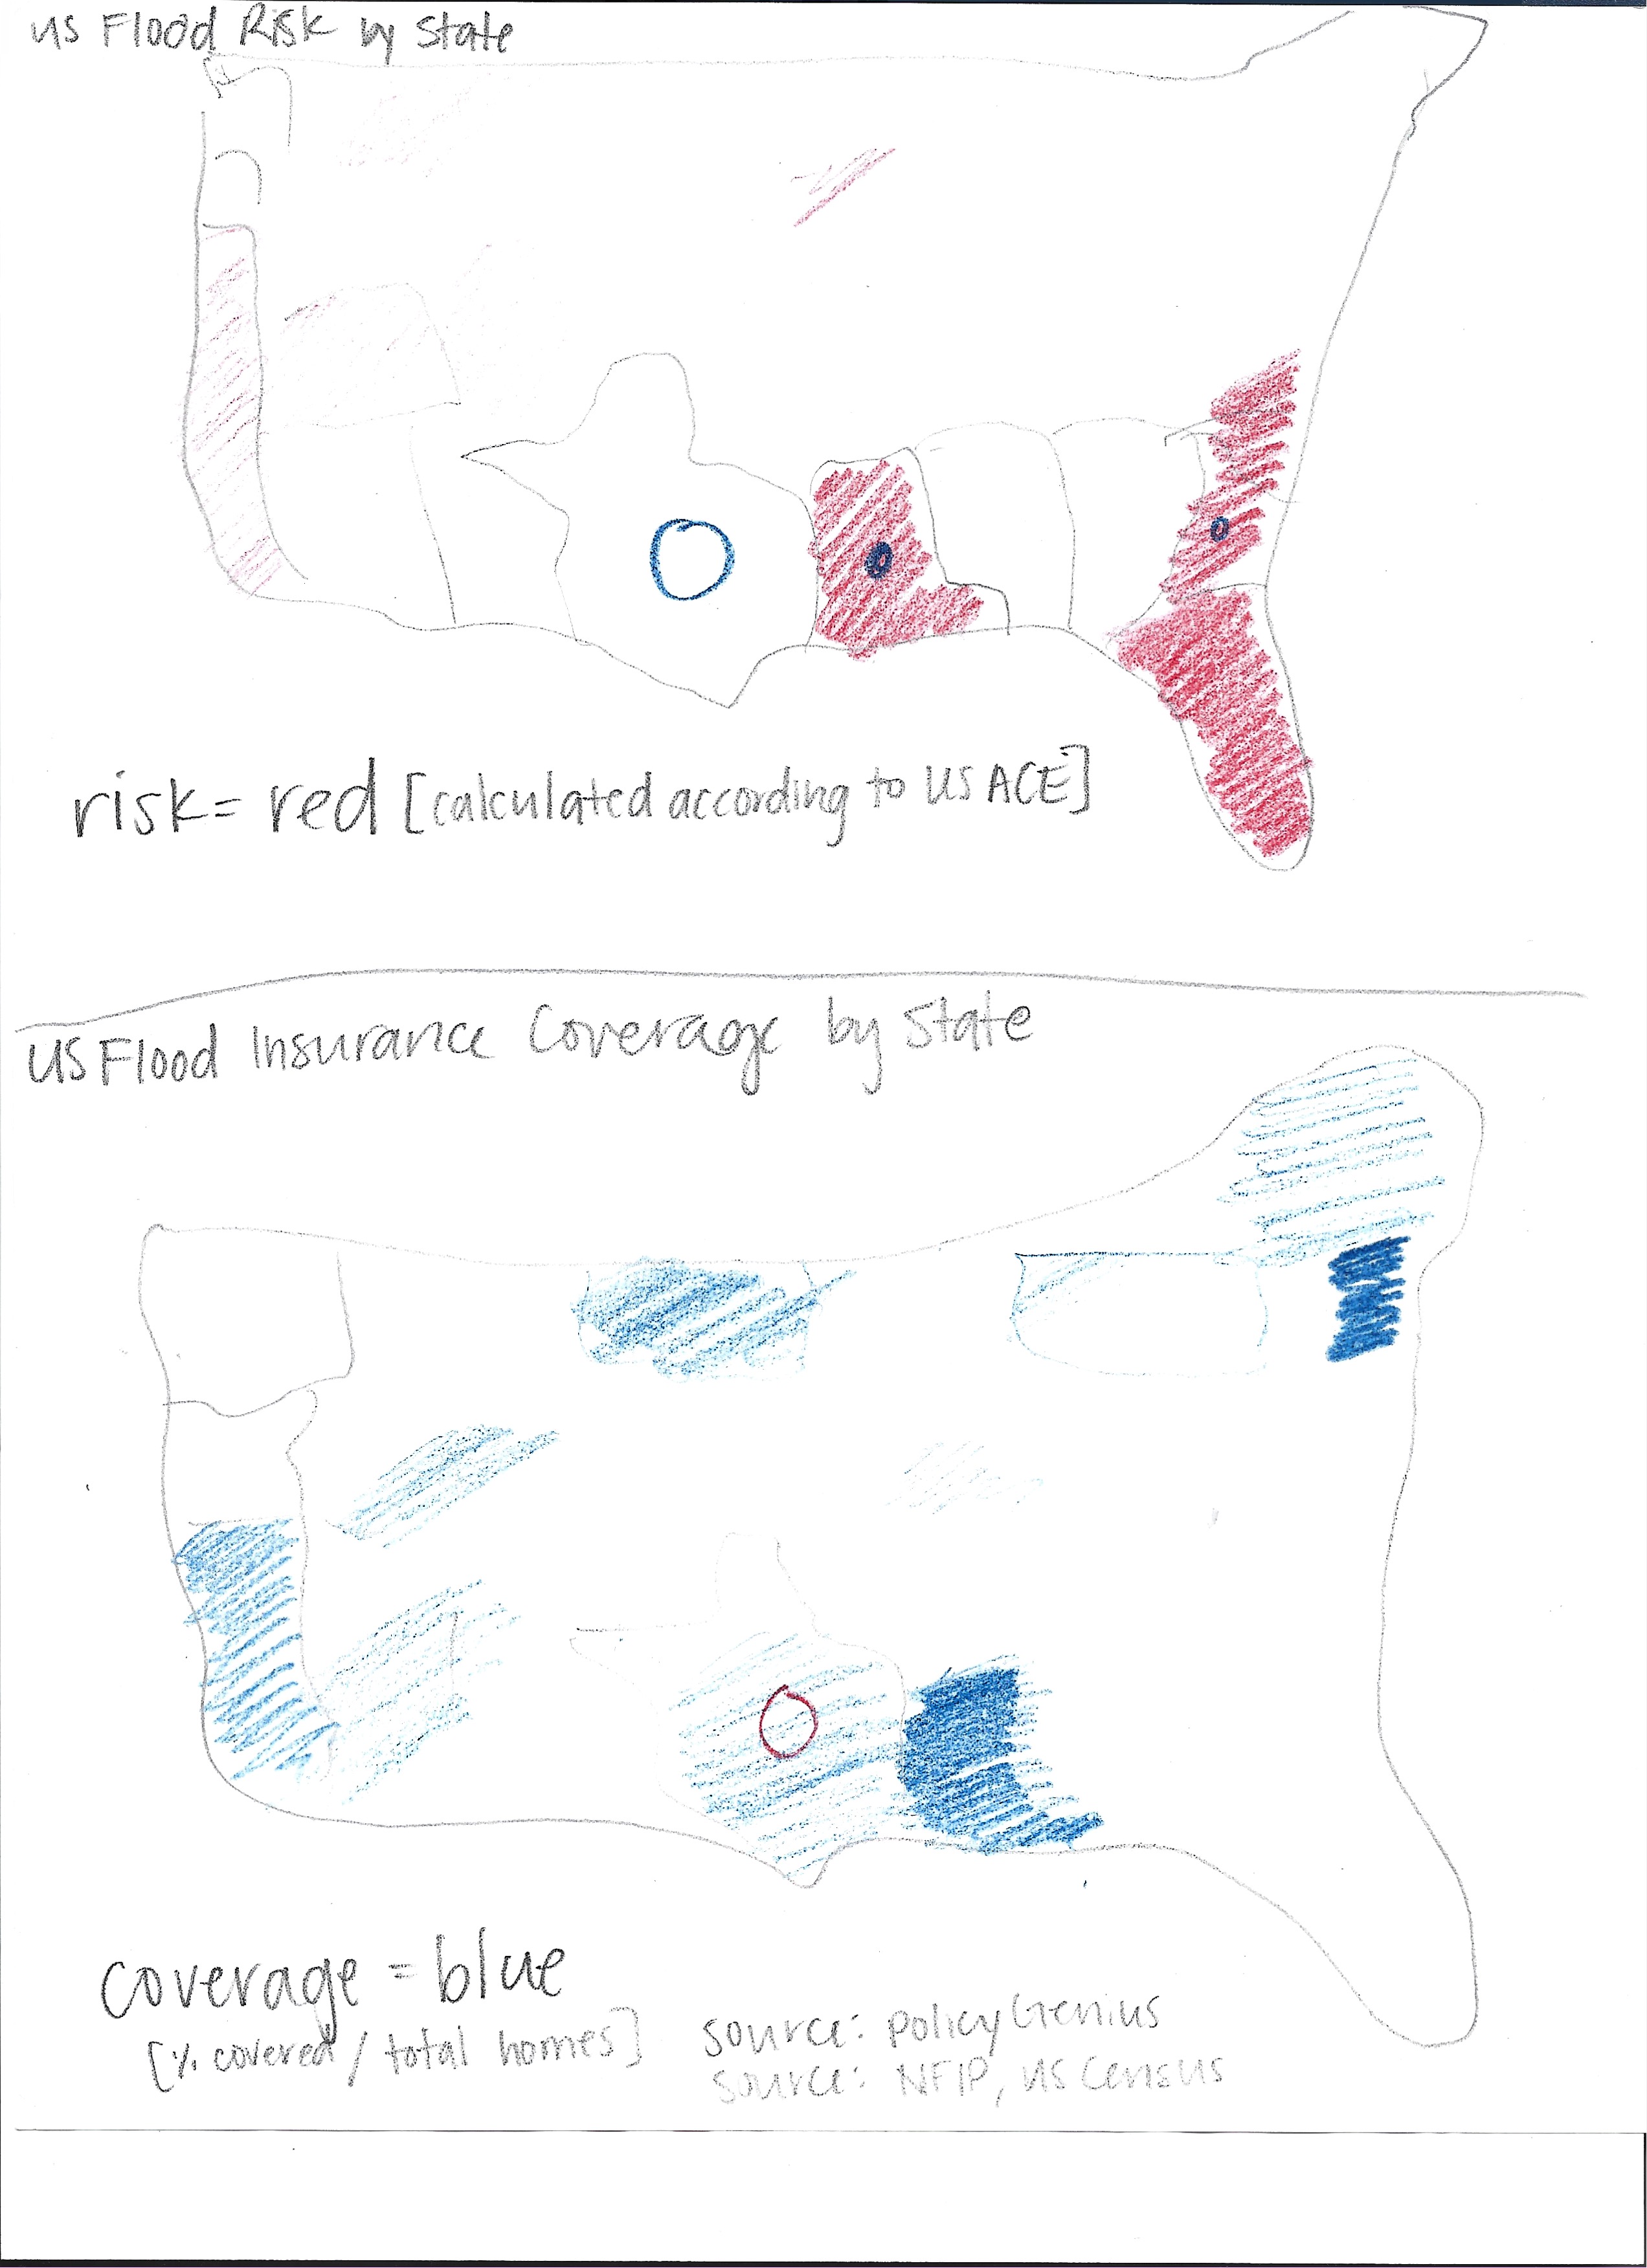 US Flood Risk by State
risk = red [calculated according to US ACE]
US Flood Insurance Coverage by State
coverage = blue
[% covered / total homes]
source: policyGenius
source: NFIP, US Census